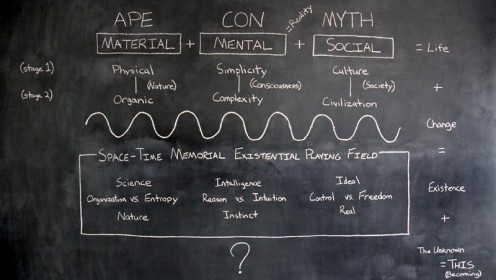 APE CON MYTH
=Reality
MATERIAL + MENTAL + SOCIAL = Life
(stage 1) Physical Simplicity Culture
(Nature) (Consciousness) (Society) +
(stage 2) Organic Complexity Civilization
Change
=
SPACE-TIME MEMORIAL EXISTENTIAL PLAYING FIELD
Science Intelligence Ideal
Organization vs. Entropy Reason vs. Intuition Control vs. Freedom
Existence
Nature Instinct Real
+
?
The Unknown
= THIS
(Becoming)